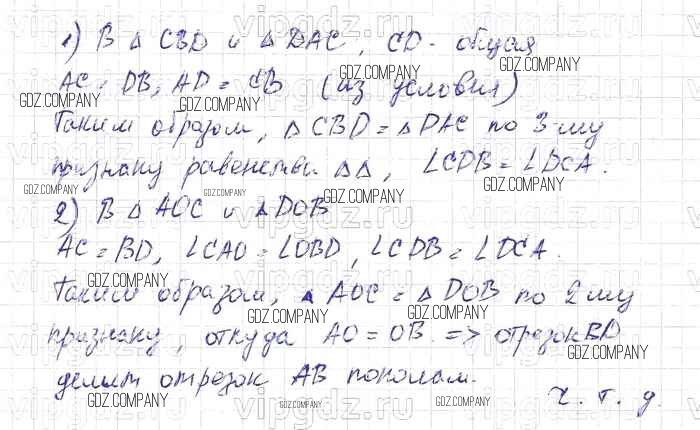 1) В △ CBD и △ DAC, CD - общая
AC = DB, AD = CB (из условия)
Таким образом, △ CBD = △ DAC по 3-му
признаку равенства △△, ∠CDB = ∠DCA.
2) В △ AOC и △ DOB
AC = BD, ∠CAO = ∠OBD, ∠CDB = ∠DCA.
Таким образом, △ AOC = △ DOB по 2-му
признаку, откуда AO = OB => отрезок
делит отрезок AB пополам.
ч. т. д.
GDZ.COMPANY
vipgdz.ru